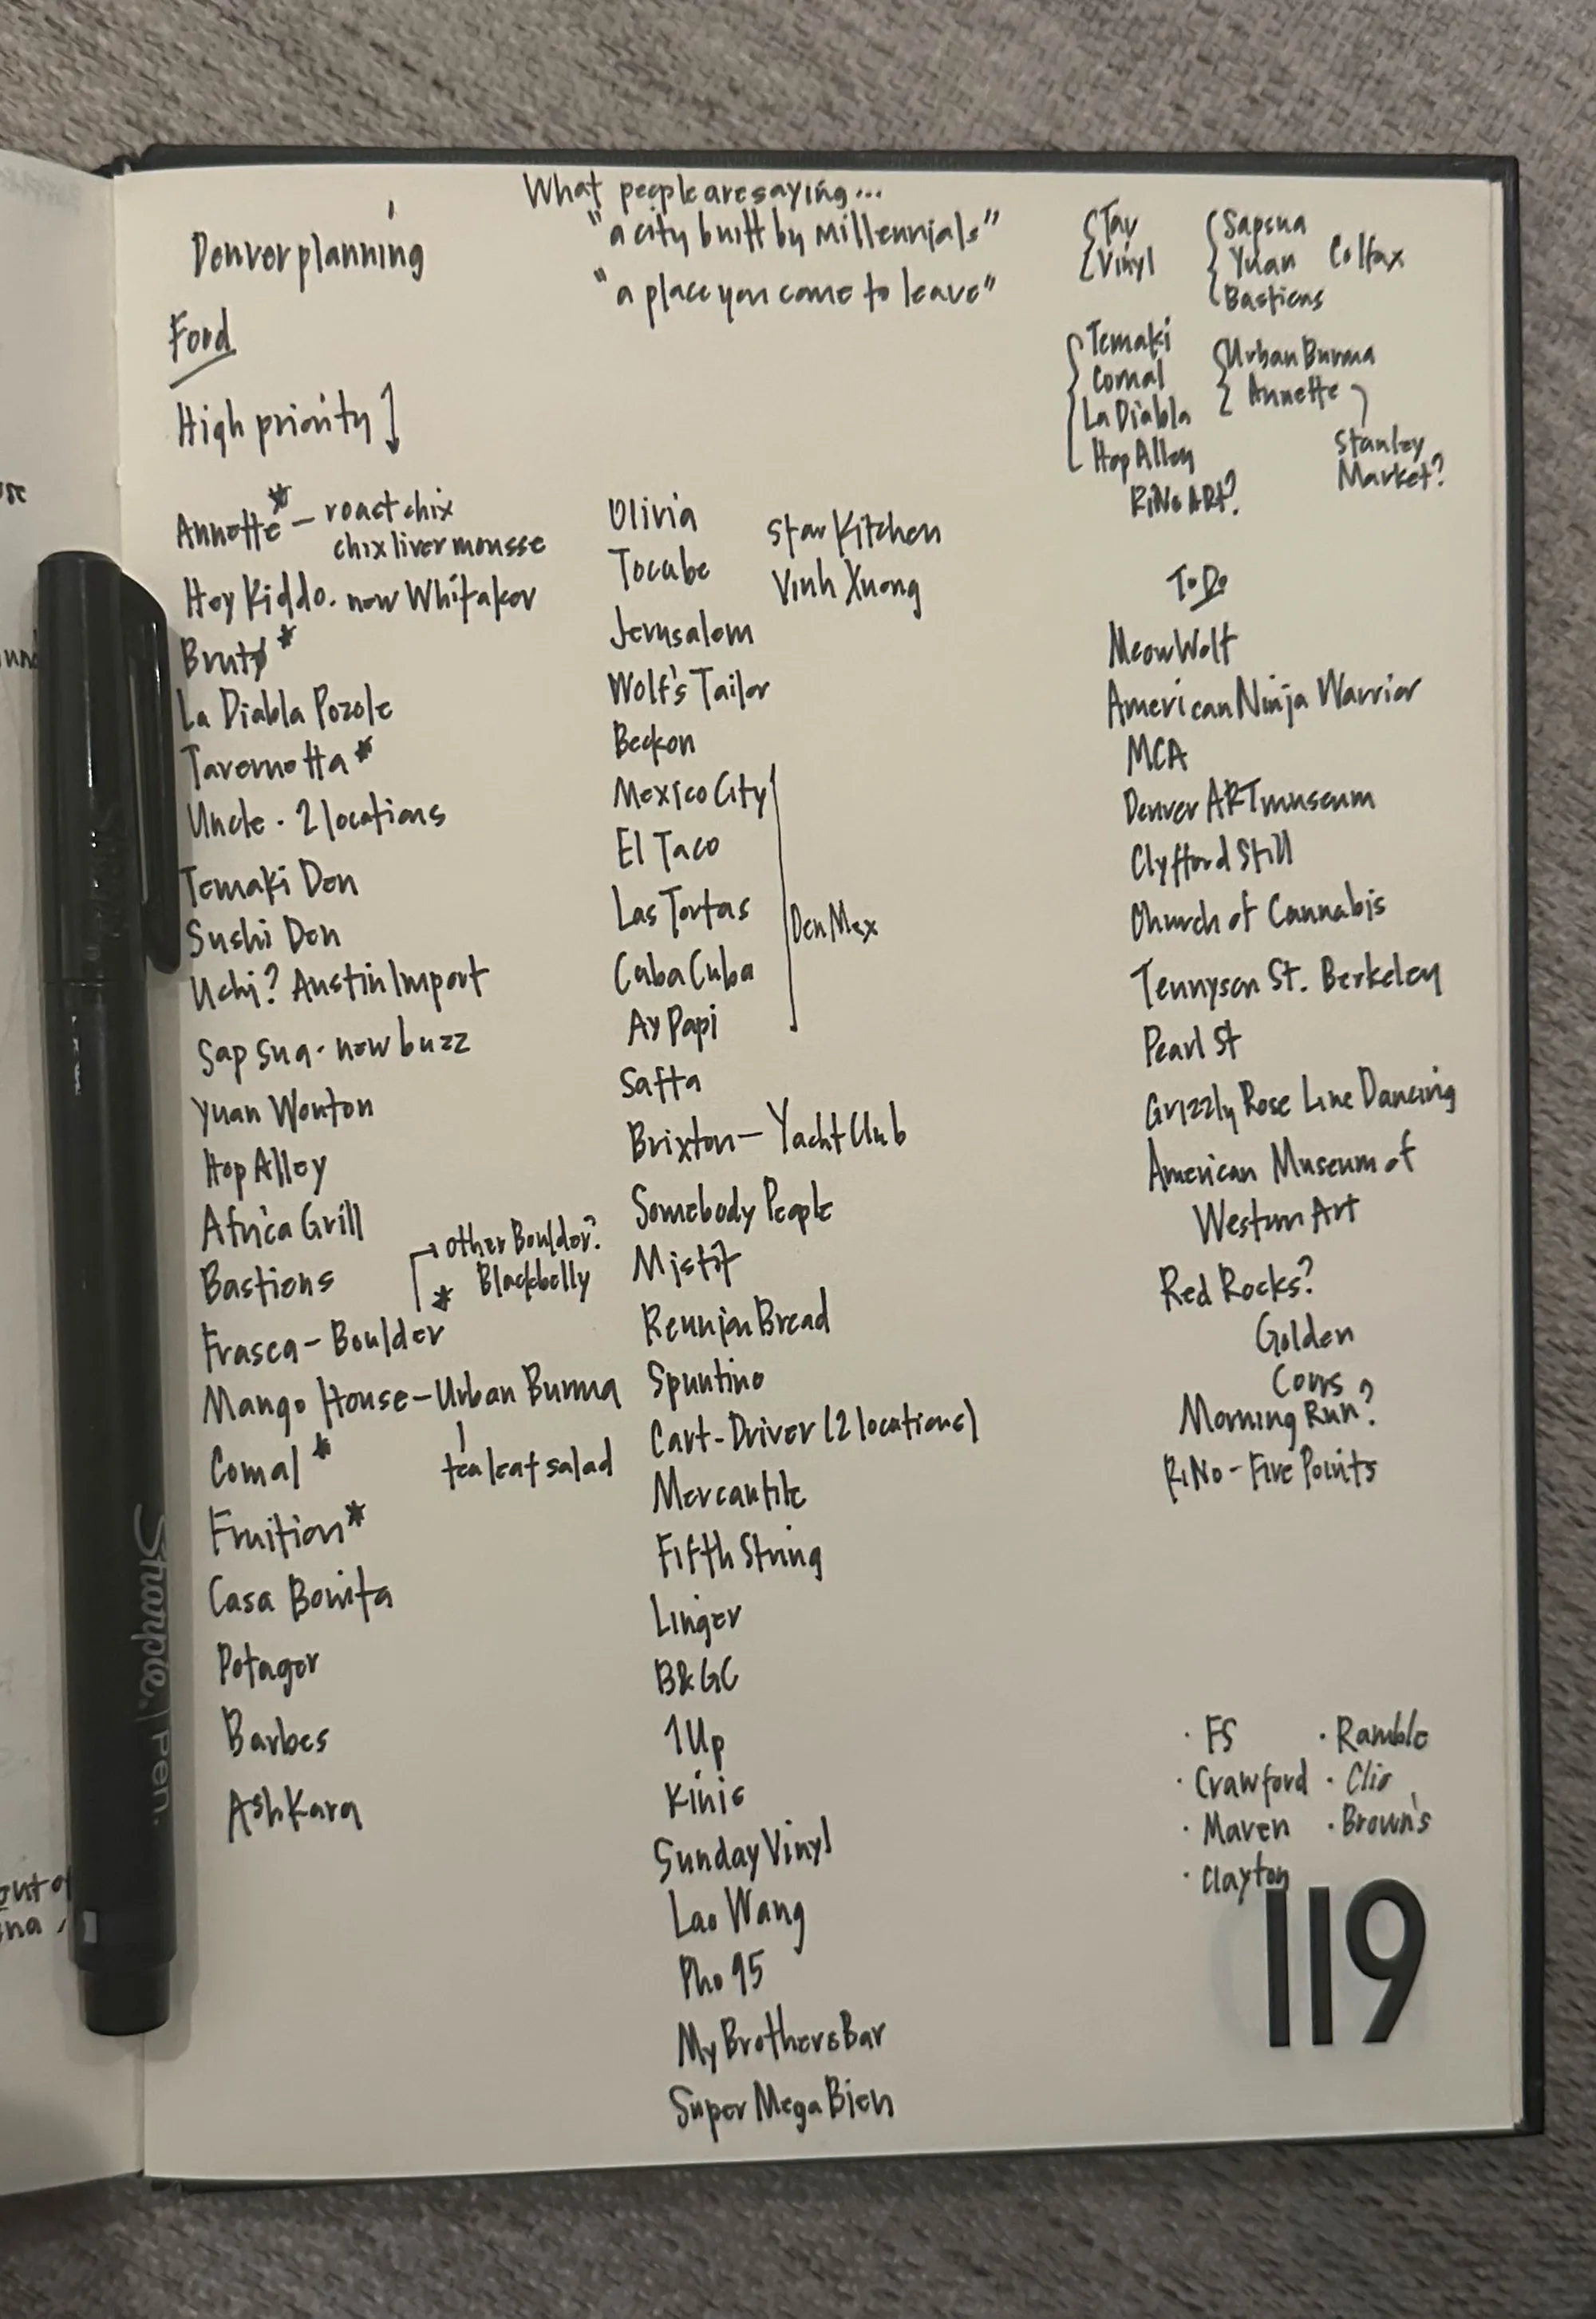 Denver planning
What people are saying...
"a city built by millennials"
"a place you come to leave"
Food
High priority
Annette* - roast chix
chix liver mousse
Hey Kiddo. now Whitaker
Brutø*
La Diabla Pozole
Tavernetta*
Uncle - 2 locations
Temaki Den
Sushi Den
Uchi? Austin Import
Sap Sua - new buzz
Yuan Wonton
Hop Alley
Africa Grill
Bastiens
Frasca - Boulder
* other Boulder?
Blackbelly
Mango House - Urban Burma
tea leaf salad
Comal*
Fruition*
Casa Bonita
Potager
Barbes
AshKara
Olivia
Tocabe
Jerusalem
Wolf's Tailor
Beckon
Mexico City
El Taco
Las Tortas
Cuba Cuba
Ay Papi
DenMex
Safta
Brixton - Yacht Club
Somebody People
Misfit
Reunion Bread
Spuntino
Cart-Driver (2 locations)
Mercantile
Fifth String
Linger
B&GC
1Up
Kinis
Sunday Vinyl
Lao Wang
Pho 95
My Brothers Bar
Super Mega Bien
Star Kitchen
Vinh Xuong
Tav
Vinyl
Sapsua
Yuan
Bastiens
Colfax
Temaki
Comal
La Diabla
Hop Alley
RiNo ART?
Urban Burma
Annette
Stanley
Market?
To Do
Meow Wolf
American Ninja Warrior
MCA
Denver ART museum
Clyfford Still
Church of Cannabis
Tennyson St. Berkeley
Pearl St
Grizzly Rose Line Dancing
American Museum of
Western Art
Red Rocks?
Golden
Coors
Morning Run?
RiNo - Five Points
· FS
· Crawford
· Maven
· Clayton
· Ramble
· Clio
· Brown's
119
Sharpie. Pen.